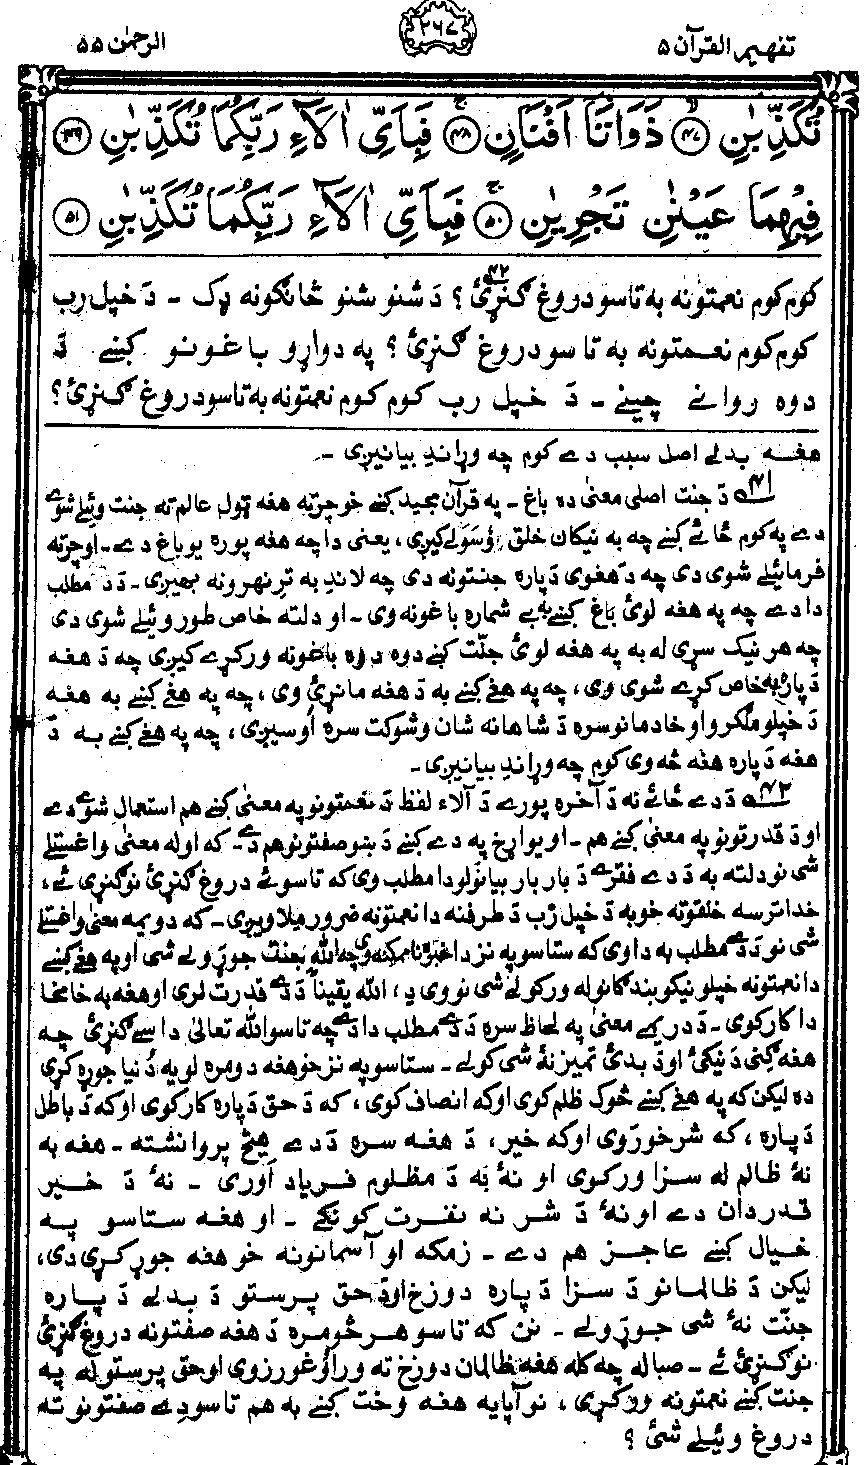 تفهيم القرآن ۵
۲۶۷
الرحمٰن ۵۵
تُكَذِّبٰنِ ﴿۴۷﴾ ذَوَاتَآ اَفْنَانٍ ﴿۴۸﴾ فَبِاَيِّ اٰلَآءِ رَبِّكُمَا تُكَذِّبٰنِ ﴿۴۹﴾
فِيْهِمَا عَيْنٰنِ تَجْرِيٰنِ ﴿۵۰﴾ فَبِاَيِّ اٰلَآءِ رَبِّكُمَا تُكَذِّبٰنِ ﴿۵۱﴾
کوم کوم نعمتونه به تاسو دروغ ګنړئ ۴۲؟ دَ شنو شنو څانګونه ډک ۔ دَ خپل رب
کوم کوم نعمتونه به تاسو دروغ ګنړئ؟ په دواړو باغونو کښے دَ
دوه روانے چینے ۔ دَ خپل رب کوم کوم نعمتونه به تاسو دروغ ګنړئ؟
هغه بدلے اصل سبب دے کوم چه وړاندِ بیانیږی ۔
۴۱ دَ جنت اصلی معنیٰ ده باغ ۔ په قرآن مجید کښے خو چرته هغه ټول عالم ته جنت وئیلے شوے
دے په کوم ځائے کښے چه به نیکان خلق اوسَولے کیږی، یعنی دا چه هغه پوره یو باغ دے ۔ او چرته
فرمائیلے شوی دی چه دَ هغوی دَ پاره جنتونه دی چه لاندِ به ترِ نهرونه بهیږی ۔ دَ دِ مطلب
دا دے چه په هغه لوئ باغ کښے به بے شماره باغونه وی ۔ او دلته خاص طور وئیلے شوی دی
چه هر نیک سړی له به په هغه لوئ جنّت کښے دوه دوه باغونه ورکړے کیږی چه دَ هغه
دَ پاره به خاص کړے شوی وی، چه په هغے کښے به دَ هغه مانړئ وی، چه په هغے کښے به هغه
دَ خپلو ملګرو او خادمانو سره دَ شاهانه شان و شوکت سره اُوسیږی، چه په هغے کښے به دَ
هغه دَ پاره هغه څه وی کوم چه وړاندِ بیانیږی ۔
۴۲ دَ دے ځائے نه دَ آخره پورے دَ آلاء لفظ دَ نعمتونو په معنیٰ کښے هم استعمال شوے دے
او دَ قدرتونو په معنیٰ کښے هم ۔ او یو اړخ په دے کښے دَ ښو صفتونو هم دے ۔ که اوله معنیٰ واغستلے
شی نو دلته به دَ دے فقرے دَ بار بار بیانولو دا مطلب وی که تاسو ئے دروغ ګنړئ نو ګنړئ ئے،
خدا ترسه خلقوته خو به دَ خپل رَب دَ طرفنه دا نعمتونه ضرور میلاویږی ۔ که دویمه معنیٰ واغستلے
شی نو دَ دے مطلب به دا وی که ستاسو په نزد دا خبره ناممکنه وی چه الله به جنت جوړولے شی او په هغے کښے
دا نعمتونه خپلو نیکو بندګانو له ورکولے شی نو وی دِ، الله یقیناً دَ دے قدرت لری او هغه به خامخا
دا کار کوی ۔ دَ دریمے معنیٰ په لحاظ سره دَ دے مطلب دا دے چه تاسو الله تعالیٰ داسے ګنړئ چه
هغه ګنی دَ نیکئ او دَ بدئ تمیز نهٔ شی کولے ۔ ستاسو په نزد خو هغه دومره لویه دُنیا جوړه کړی
ده لیکن که په هغے کښے څوک ظلم کوی او که انصاف کوی، که دَ حق دَ پاره کار کوی او که دَ باطل
دَ پاره، که شر خوروی او که خیر، دَ هغه سره دَ دے هیڅ پروا نشته ۔ هغه به
نهٔ ظالم له سزا ورکوی او نهٔ به دَ مظلوم فریاد آوری ۔ نهٔ دَ خیر
قدردان دے او نهٔ دَ شر نه نفرت کونکے ۔ او هغه ستاسو په
خیال کښے عاجز هم دے ۔ زمکه او آسمانونه خو هغه جوړ کړی دی،
لیکن دَ ظالمانو دَ سزا دَ پاره دوزخ او دَ حق پرستو دَ بدلے دَ پاره
جنّت نهٔ شی جوړولے ۔ نن که تاسو هر څومره دَ هغه صفتونه دروغ ګنړئ
نو ګنړئ ئے ۔ صبا له چه کله هغه ظالمان دوزخ ته ورأوغورزوی او حق پرستو له په
جنت کښے نعمتونه ورکړی، نو آیا په هغه وخت کښے به هم تاسو دِ صفتونو ته
دروغ وئیلے شئ؟